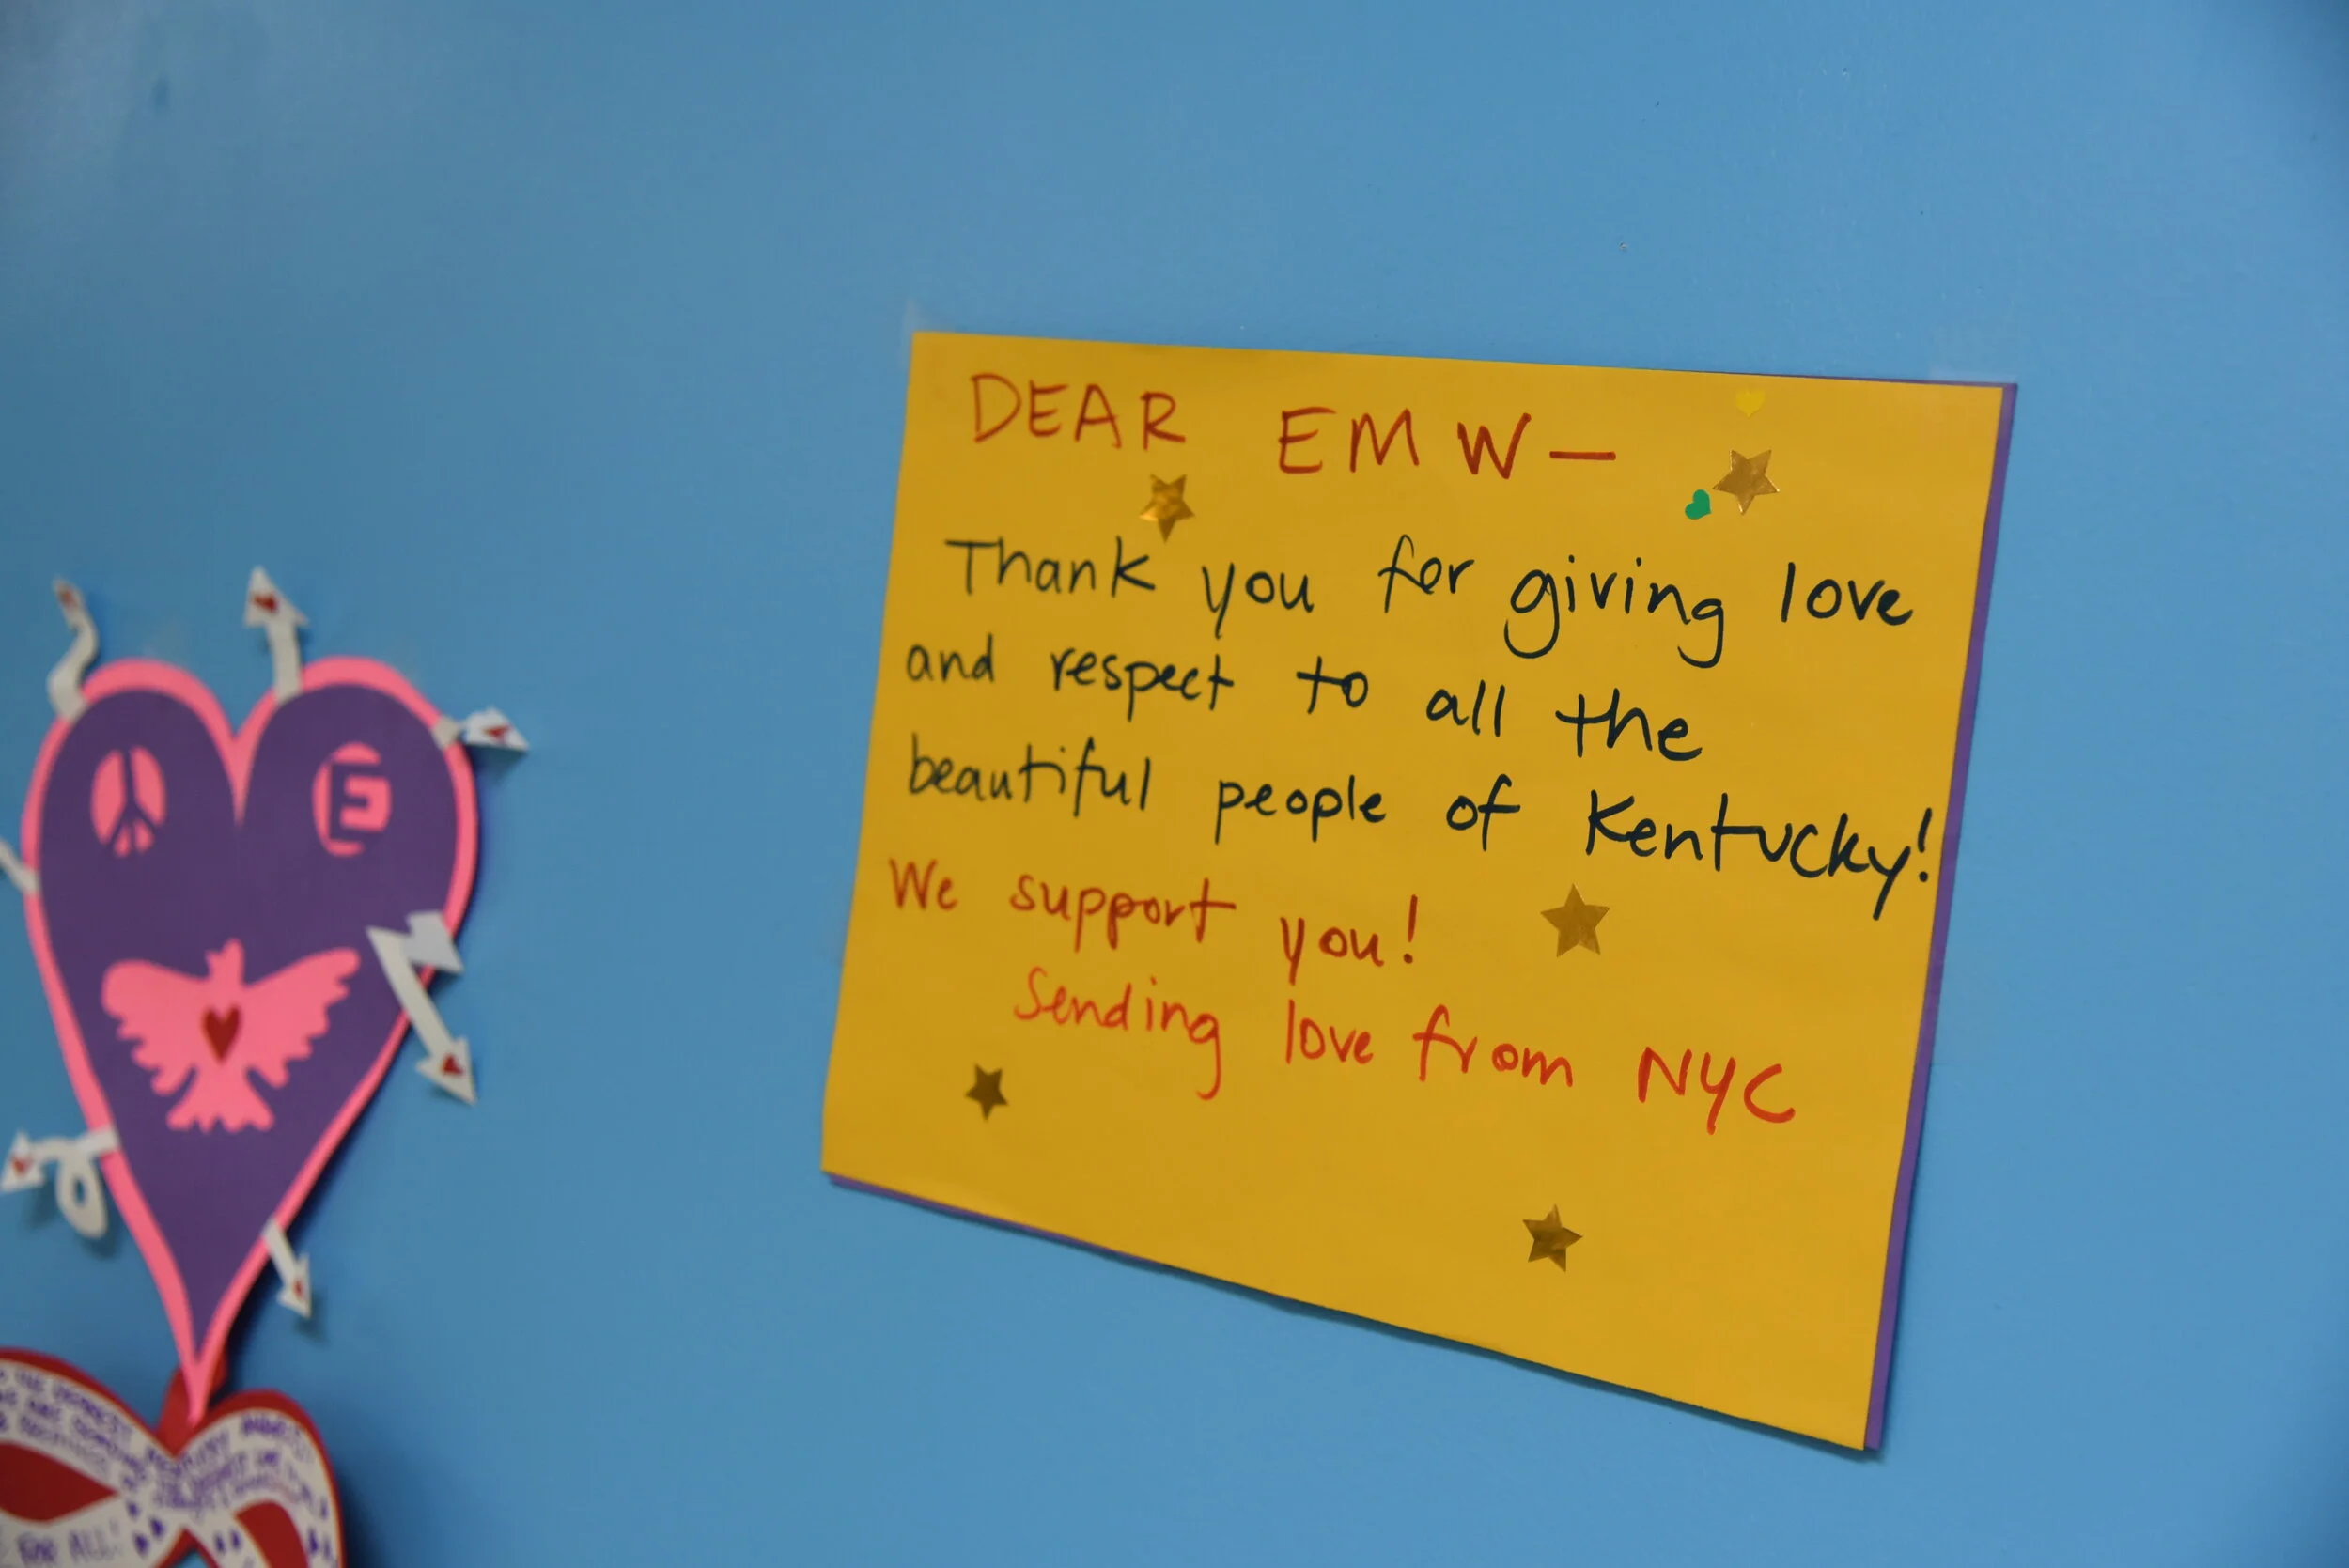 DEAR EMW—
Thank you for giving love
and respect to all the
beautiful people of Kentucky!
We support you!
Sending love from NYC
E
FOR ALL!